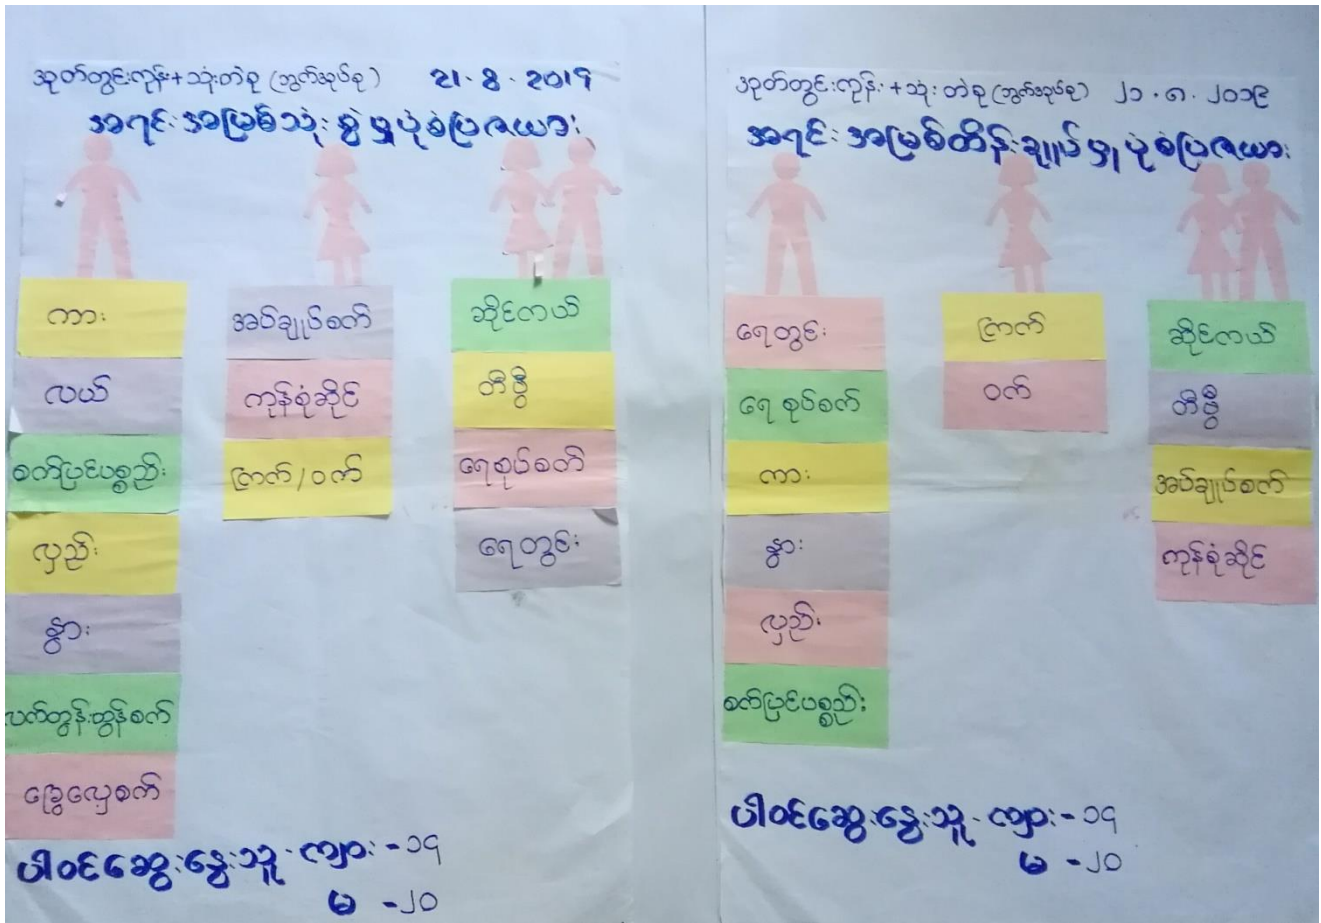 အုတ်တွင်းကုန်း+သုံးတဲစု (ဘွက်အုပ်စု) ၂၁.၆.၂၀၁၉
အရင်းအမြစ်သုံးစွဲမှုပုံစံပြဇယား
ကား
လယ်
စက်ပြင်ပစ္စည်း
လှည်း
နွား
လက်တွန်းထွန်စက်
ခြွေလှေ့စက်
အပ်ချုပ်စက်
ကုန်စုံဆိုင်
ကြက်/ဝက်
ဆိုင်ကယ်
တီဗွီ
ရေစုပ်စက်
ရေတွင်း
ပါဝင်ဆွေးနွေးသူ - ကျား - ၁၄
မ - ၂၀
အုတ်တွင်းကုန်း+သုံးတဲစု (ဘွက်အုပ်စု) ၂၁.၆.၂၀၁၉
အရင်းအမြစ်ထိန်းချုပ်မှုပုံစံပြဇယား
ရေတွင်း
ရေစုပ်စက်
ကား
နွား
လှည်း
စက်ပြင်ပစ္စည်း
ကြက်
ဝက်
ဆိုင်ကယ်
တီဗွီ
အပ်ချုပ်စက်
ကုန်စုံဆိုင်
ပါဝင်ဆွေးနွေးသူ - ကျား - ၁၄
မ - ၂၀